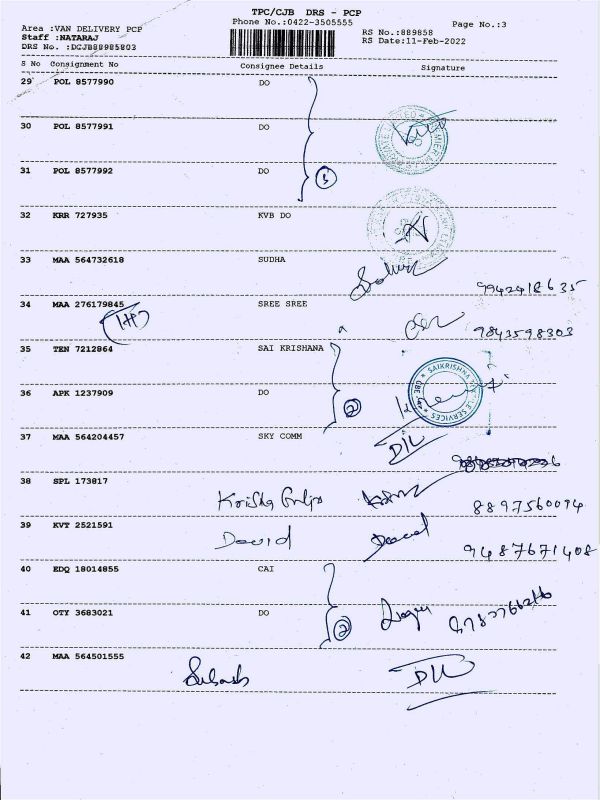 TPC/CJB DRS - PCP
Area :VAN DELIVERY PCP
Phone No.:0422-3505555
Page No.:3
Staff :NATARAJ
RS No.:889858
DRS No. :DCJB88985803
RS Date:11-Feb-2022
S No Consignment No Consignee Details Signature
29 POL 8577990 DO
30 POL 8577991 DO
31 POL 8577992 DO
32 KRR 727935 KVB DO
33 MAA 564732618 SUDHA
9942418635
34 MAA 276179845 SREE SREE
9843598303
35 TEN 7212864 SAI KRISHANA
SAIKRISHNA SERVICES
36 APK 1237909 DO
2
37 MAA 564204457 SKY COMM
D/L
38 SPL 173817
8897560094
39 KVT 2521591 David
9487671408
40 EDQ 18014855 CAI
41 OTY 3683021 DO
2
42 MAA 564501555 Subash D/L